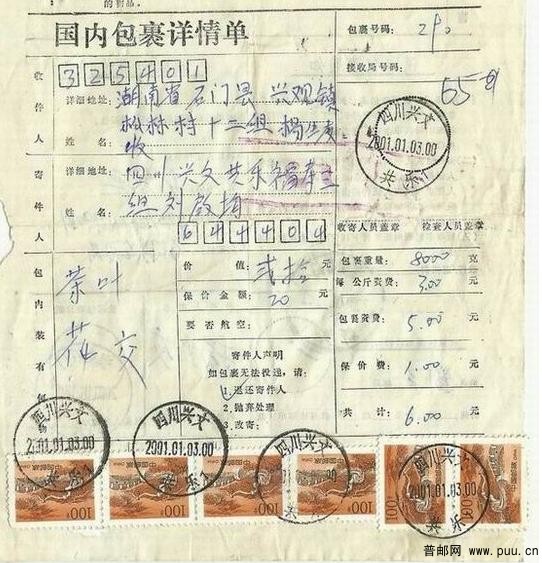 的物品。
国内包裹详情单
包裹号码: 210
接收局号码:
65-9
收件人
325401
详细地址: 湖南省石门县
松林村十二组
姓名: 收
寄件人
详细地址: 四川兴文共乐
姓名:
644404
四川兴文
2001.01.03.00
共乐
收寄人员盖章 检查人员盖章
包内装有何
茶叶
花交
价值: 贰拾 元
保价金额: 20 元
要否航空:
包裹重量: 8000 克
每公斤资费: 3.00 元
包裹资费: 5.00 元
保价费: 1.00 元
共计: 6.00 元
寄件人声明
如包裹无法投递,请:
1.退还寄件人
2.抛弃处理
3.改寄:
四川兴文
2001.01.03.00
共乐
四川兴文
2001.01.03.00
共乐
四川兴文
01.03.00
共乐
四川兴文
2001.01.03.00
共乐
中国邮政
100分
中国邮政
100分
中国邮政
100分
中国邮政
100分
中国邮政
100分
中国邮政
100分
普邮网 www.puu.cn